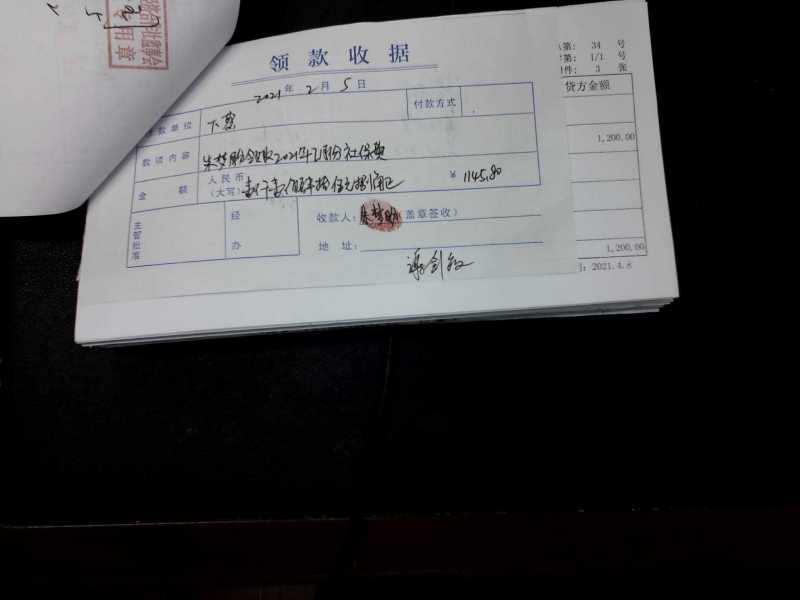 专用章
领款收据
2021年2月5日
款单位 下蔡 付款方式
款项内容 朱梦 领取2021年2月份社保费
金额 人民币(大写) 壹仟壹佰肆拾伍元捌角 ¥1145.80
主管批准 经办 收款人: 朱梦 (盖章签收)
地址:
第: 34 号
第: 1/1 号
件: 3 张
贷方金额
1,200.00
1,200.00
: 2021.4.8